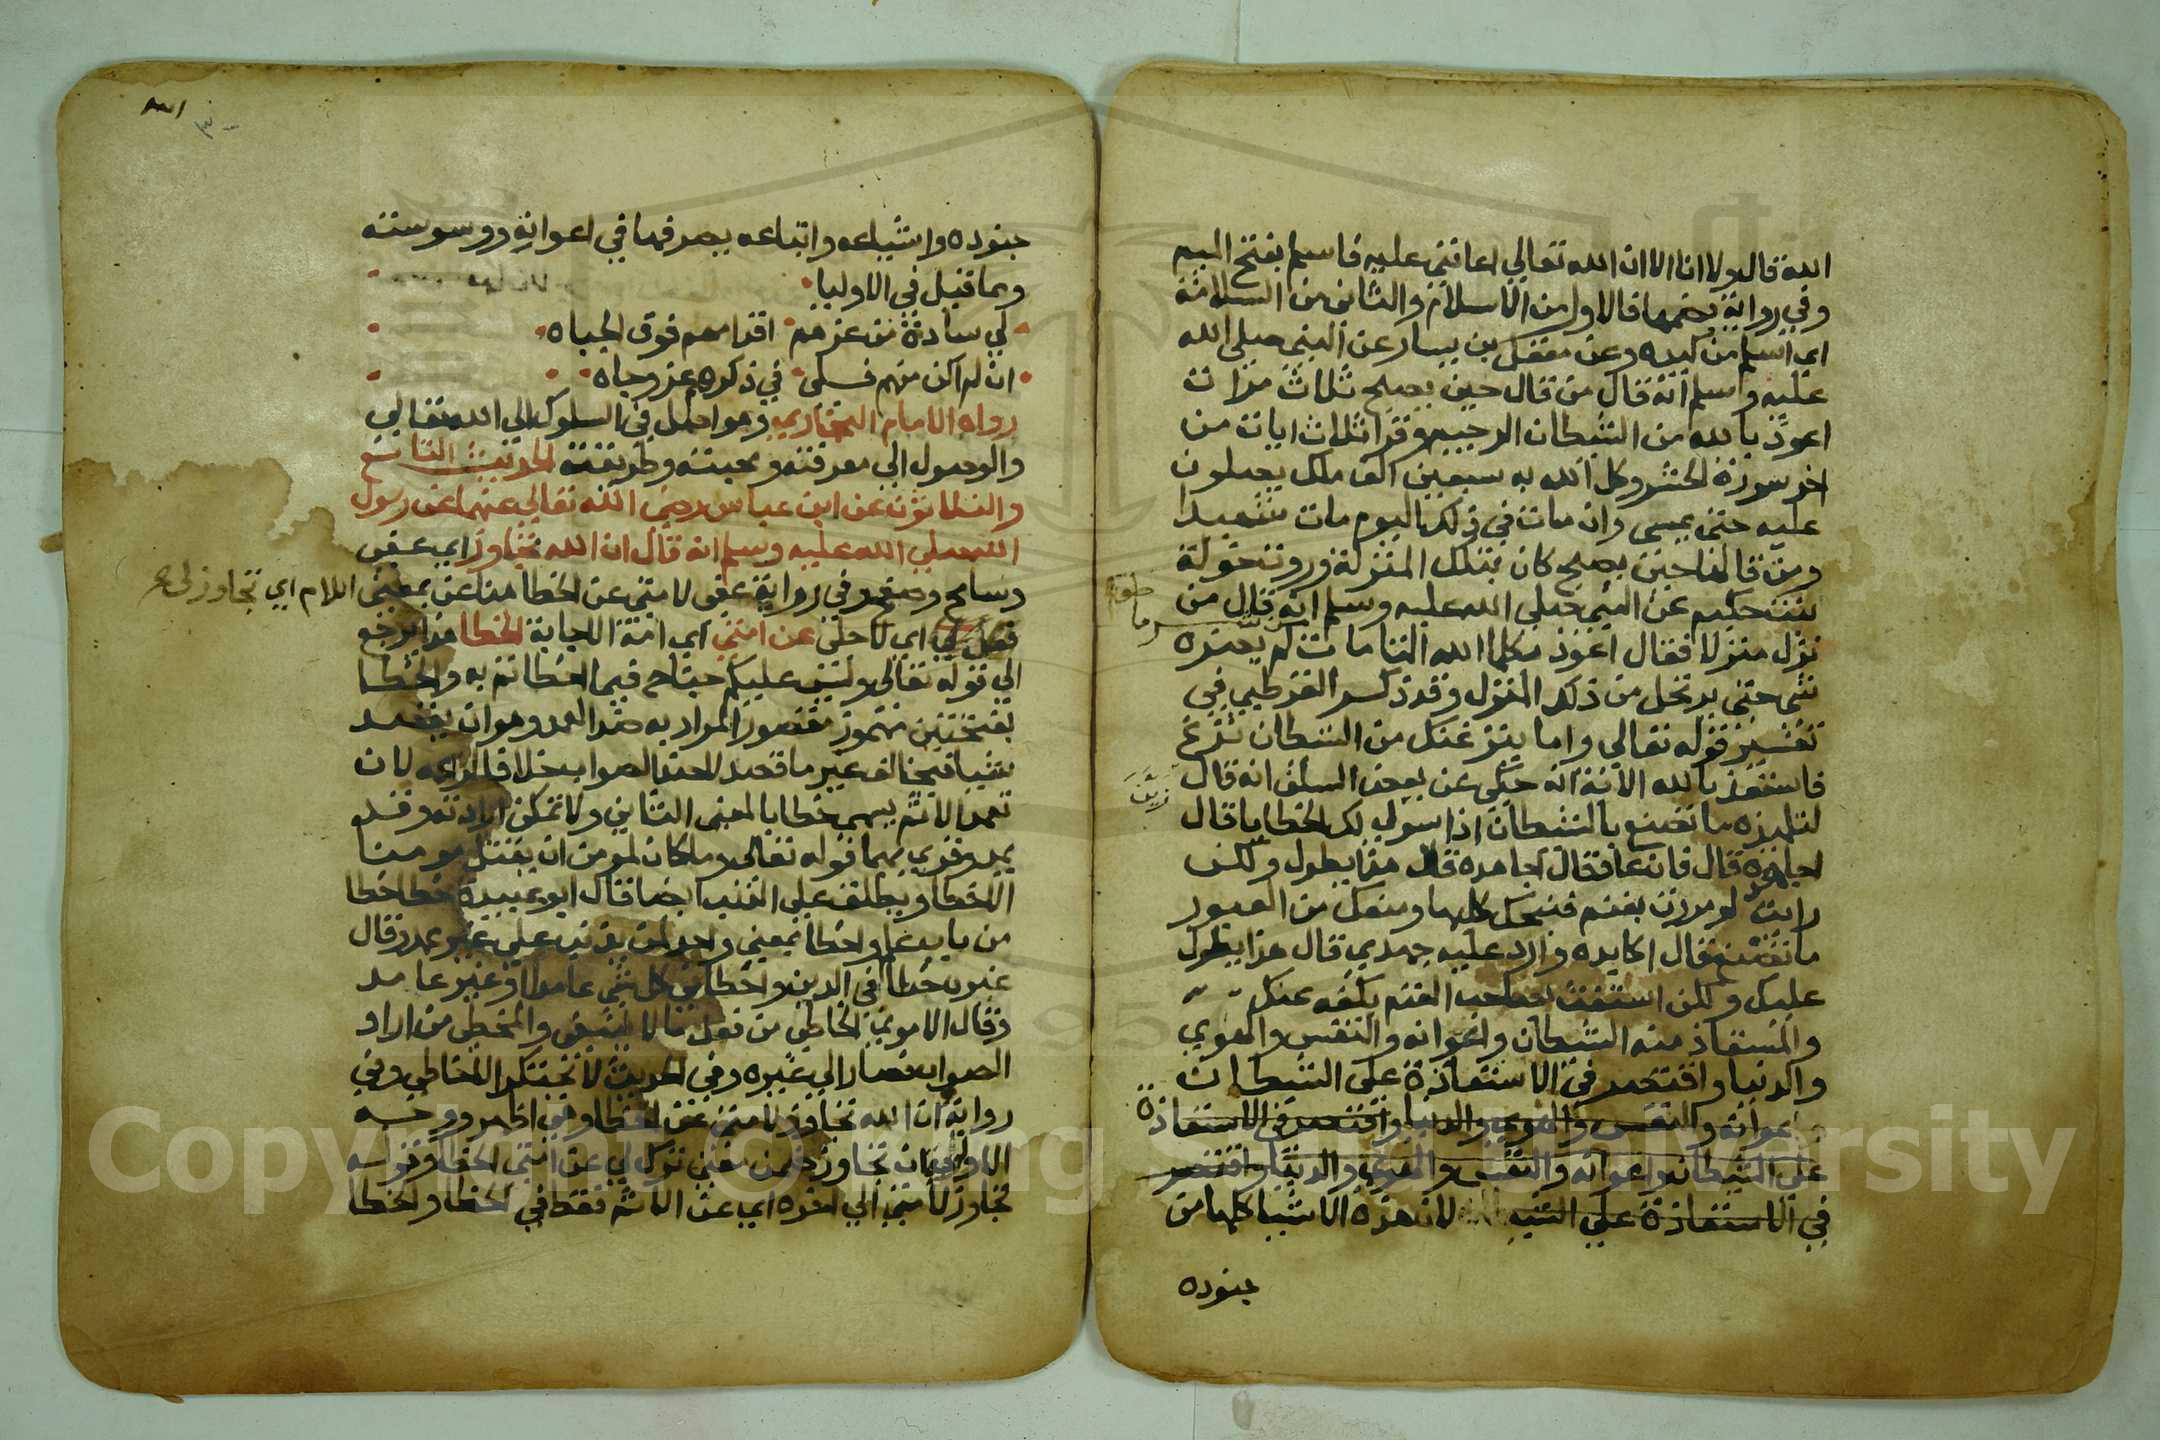 الله قال ولا انا الا ان الله تعالي اعانني عليه فاسلم بفتح الميم
وفي رواية بضمها فالاول من الاسلام والثاني من السلامة
اي اسلم من كيده وعن معقل بن يسار عن النبي صلي الله
عليه وسلم انه قال من قال حين يصبح ثلاث مرات
اعوذ بالله من الشيطان الرجيم وقرا ثلاث ايات من
اخر سورة الحشر وكل الله به سبعين الف ملك يصلون
عليه حتى يمسى وان مات في ذلك اليوم مات شهيدا
ومن قالها حين يصبح كان بتلك المنزلة وروت خولة
بنت حكيم عن النبي صلي الله عليه وسلم انه قال من
نزل منزلا فقال اعوذ بكلمات الله التامات لم يضره
شي حتى يرتحل من ذلك المنزل وقد ذكر القرطبي في
تفسير قوله تعالي واما ينزغنك من الشيطان نزغ
فاستعذ بالله الاية انه حكي عن بعض السلف انه قال
لتلميذه ما تصنع بالشيطان اذا سول لك الخطايا قال
اجاهده قال فان عاد قال اجاهده قال هذا يطول ولكن
رايت لو مررت بغنم فنبحك كلبها ومنعك من العبور
ما تصنع قال اكابده وارد عليه جهدي قال هذا يطول
عليك ولكن استغث بصاحب الغنم يكفه عنك
والمستعاذ منه الشيطان واعوانه والنفس والهوي
والدنيا واقتصر في الاستعاذة علي الشيطان
واعوانه والنفس والهوي والدنيا واقتصر في الاستعاذة
علي الشيطان واعوانه والنفس والهوي والدنيا واقتصر
في الاستعاذة علي لان هذه الاشيا كلها من
جنوده
جنوده واشياعه واتباعه يصرفها في اعوانه ووسوسته
ومما قيل في الاوليا
لي سادة من عزهم اقدامهم فوق الجباه
ان لم اكن منهم فلي في ذكرهم عز وجاه
رواه الامام البخاري وهو اصل في السلوك الي الله تعالي
والوصول الي معرفته ومحبته وطريقته الحديث التاسع
والثلاثون عن ابن عباس رضي الله تعالي عنهما عن رسول
الله صلي الله عليه وسلم انه قال ان الله تجاوز اي عفي
وسامح وصفح وفي رواية عفي لامتي عن الخطا هنا عن بمعني اللام اي تجاوز لي
لي اي لاجلي عن امتي اي امة الاجابة الخطا هذا يرجع
الي قوله تعالي وليس عليكم جناح فيما اخطاتم به والخطا
بفتحتين مهموز مقصور المراد به ضد العمد وهو ان يقصد
شيا فيخالف غير ما قصد لاضد الصواب خلافا لزاعمه لان
تعمد الاثم يسمي خطا بالمعني الثاني ولا تمكن ارادته وقد
يمد وقري بهما قوله تعالي وما كان لمومن ان يقتل مومنا
الاخطا ويطلق علي الذنب ايضا قال ابو عبيدة خطا خطا
من باب علم واخطا بمعني واحد لمن يذنب علي غير عمد وقال
غيره خطا في الدين واخطا في كل شي عامدا او غير عامد
وقال الاموي الخاطي من فعل ما لا ينبغي والمخطي من اراد
الصواب فصار الي غيره وفي الحديث لا يحتكر الا خاطي وفي
رواية ان الله تجاوز لامتي عن الخطا وهي اظهر ووجه
الاولي ان تجاوز ضمن معني ترك لي عن امتي الخطا وقوله
تجاوز لامتي الي اخره اي عن الاثم فقط في الخطا والخطا
Copyright © King Saud University